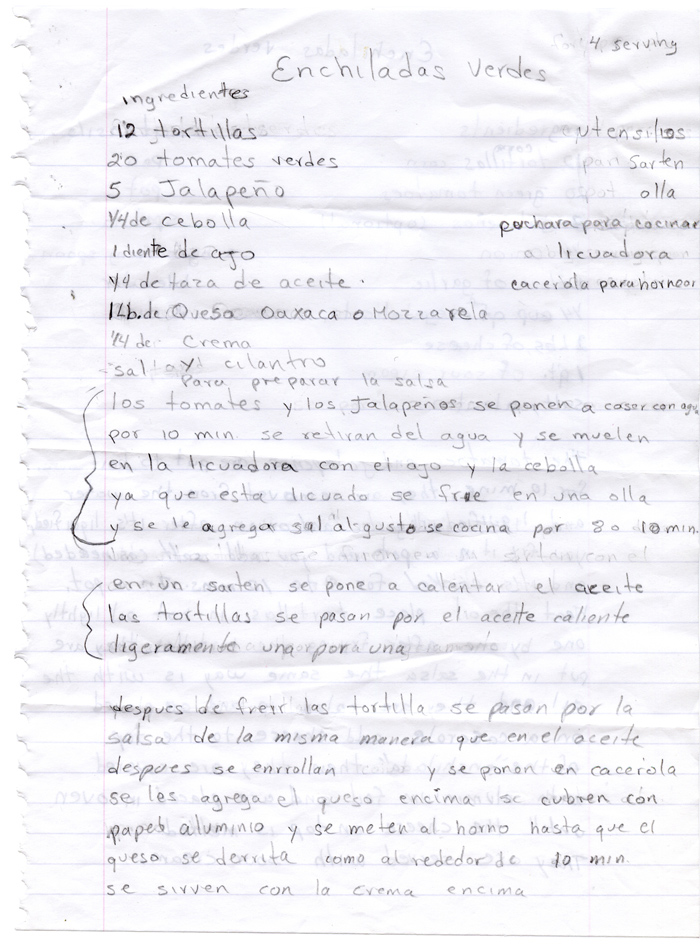 4 serving
Enchiladas verdes
ingredientes
12 tortillas utensilios
20 tomates verdes pan Sarten
5 Jalapeño olla
1/4 de cebolla cuchara para cocinar
1 diente de ajo licuadora
1/4 de taza de aceite. cacerola para hornear
1 Lb. de Queso Oaxaca o Mozzarela
1/4 de Crema
sal y cilantro
Para preparar la salsa
los tomates y los Jalapeños se ponen a coser con agua
por 10 min se retiran del agua y se muelen
en la licuadora con el ajo y la cebolla
ya que esta licuado se frie en una olla
y se le agregar sal al gusto se cocina por 8 o 10 min.
en un sarten se pone a calentar el aceite
las tortillas se pasan por el aceite caliente
ligeramente una por a una
despues de freir las tortilla se pasan por la
salsa de la misma manera que en el aceite
despues se enrrollan y se ponon en cacerola
se les agrega el queso encima se cubren con
papel aluminio y se meten al horno hasta que el
queso se derrita como al rededor de 10 min.
se sirven con la crema encima